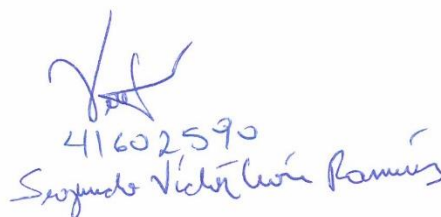 41602590
Segundo Victor León Ramírez